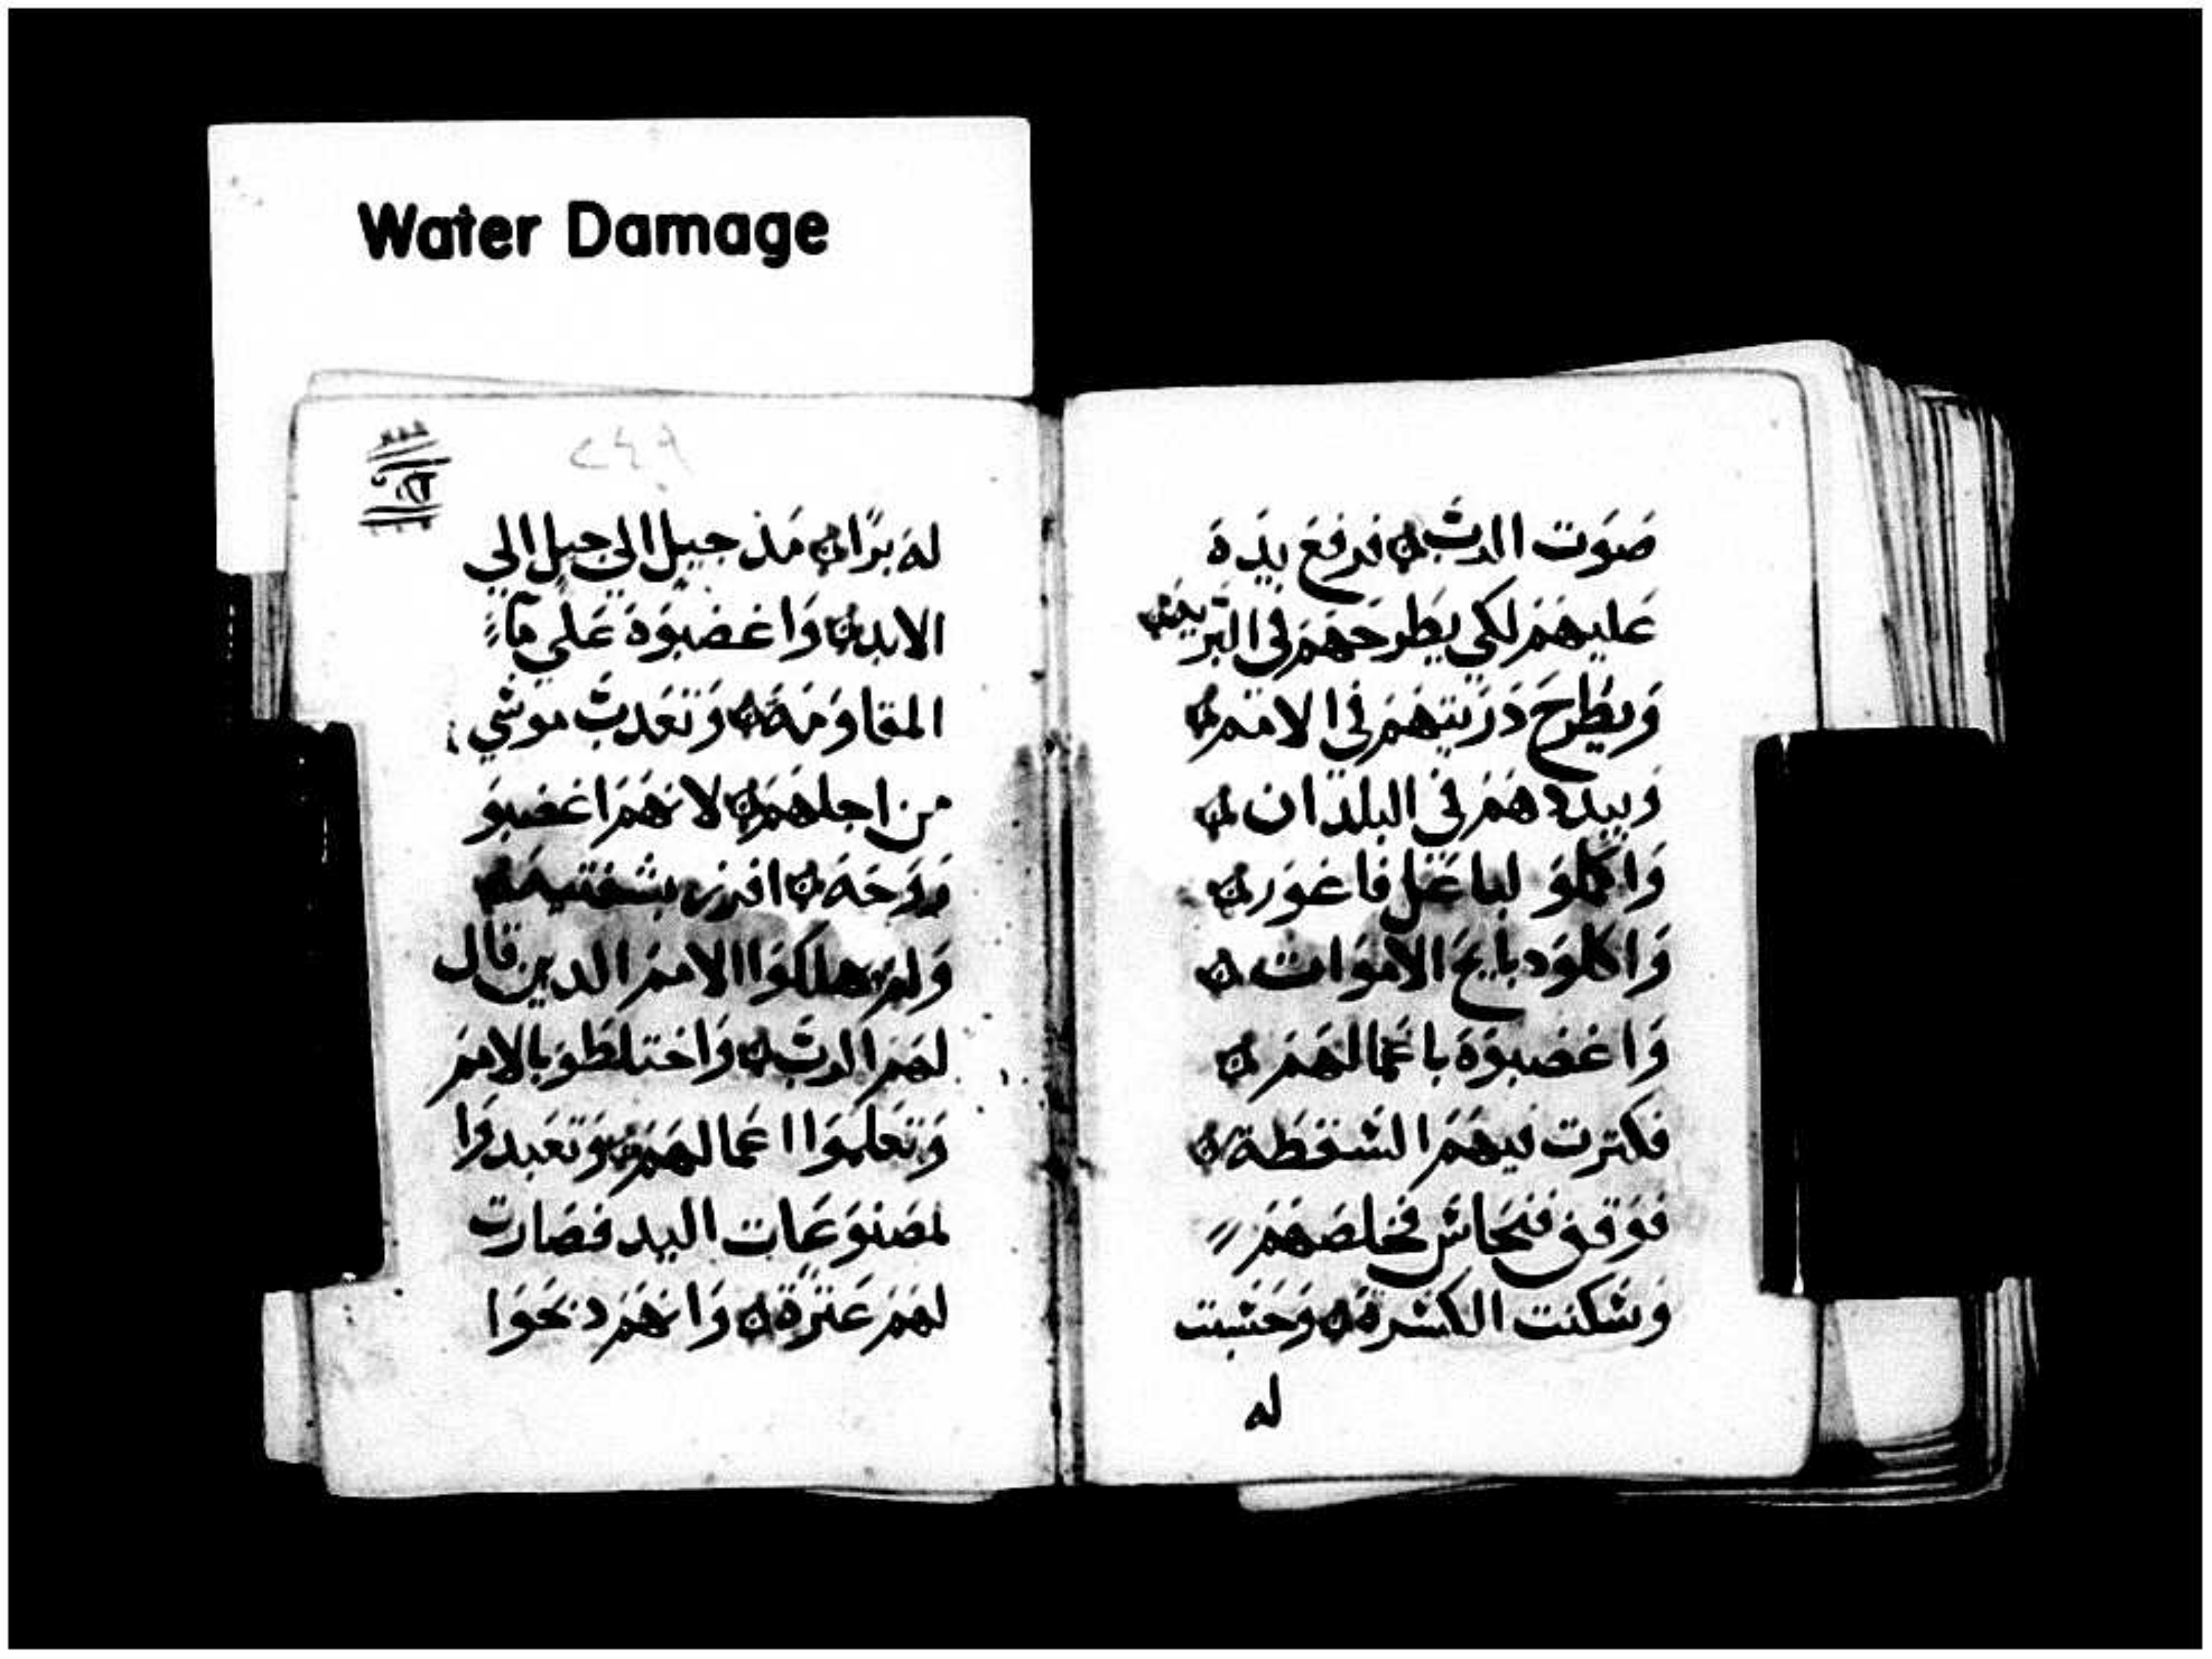 Water Damage
صَوَت الرب فرفع يده
عليهم لكي يطرحهم في البريه
ويطرح دريتهم في الامم
ويبددهم في البلدان
واكلو لباعل فاغور
واكلو دبايح الاموات
واغضبوه باعمالهم
فكترت فيهم السقطة
فوقف فنحاس فخلصهم
وسكنت الكسرة وحسبت
له
٢٤٩
له برا مند جيل الي جيل الي
الابد واغضبوه علي ما
المقاومة وتعدب موسي
من اجلهم لانهم اغضبو
روحه افرز بشفتيه
ولم يهلكوا الامم الدين قال
لهم الرب واختلطو بالامم
وتعلموا اعمالهم وتعبدوا
لمصنوعات اليد فصارت
لهم عترة وانهم دبحوا